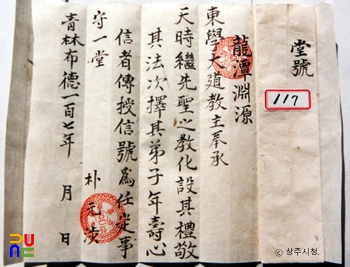 堂號
117
龍潭淵源
東學大道教主奉承
天時繼先聖之教化設其禮敬
其法次擇其弟子年壽心
信者傳授信號為任定事
守一堂
朴元
青林布德一百七年 月 日
© 상주시청.